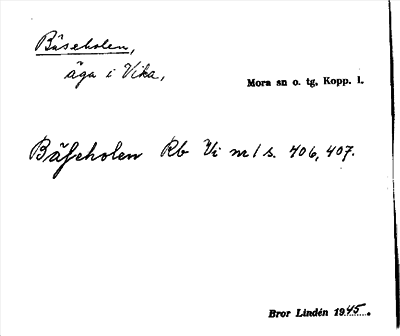 Båseholen,
äga i Vika,
Mora sn o. tg, Kopp. l.
Båſeholen Rb Vi m/s. 406, 407.
Bror Lindén 1945.